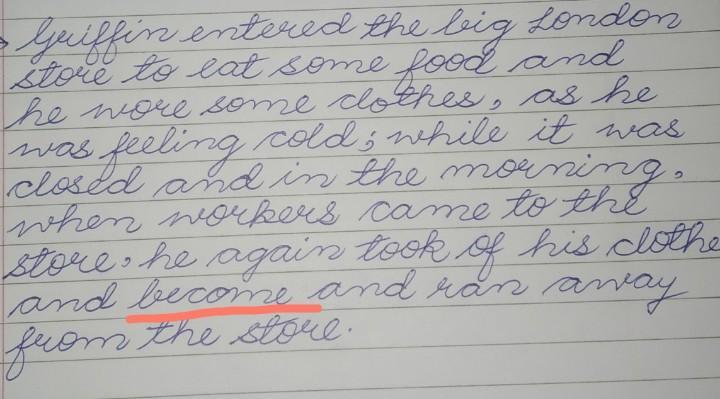 Griffin entered the big London
store to eat some food and
he wore some clothes, as he
was feeling cold; while it was
closed and in the morning,
when workers came to the
store, he again took of his clothe
and become and ran away
from the store.